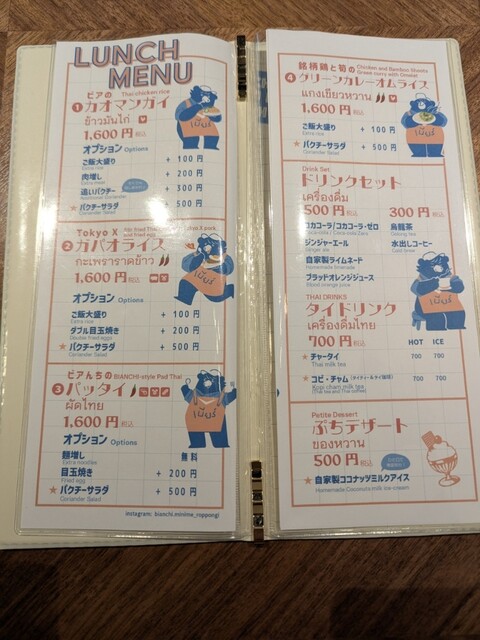 LUNCH
MENU
ビアの Thai chicken rice
① カオマンガイ
ข้าวมันไก่
1,600 円 税込
オプション Options
ご飯大盛り + 100 円
Extra rice
肉増し + 200 円
Extra meat
追いパクチー + 300 円
★ パクチーサラダ + 500 円
Coriander Salad
เบียร์
Tokyo X
② ガパオライス
กะเพราราดข้าว
1,600 円 税込
オプション Options
ご飯大盛り + 100 円
Extra rice
ダブル目玉焼き + 200 円
Double fried eggs
★ パクチーサラダ + 500 円
Coriander Salad
เบียร์
ビアんちの BIANCHI-style Pad Thai
③ パッタイ
ผัดไทย
1,600 円 税込
オプション Options
麺増し 無料
Extra noodles
目玉焼き + 200 円
Fried egg
★ パクチーサラダ + 500 円
Coriander Salad
เบียร์
instagram: bianchi.minime_roppongi
銘柄鶏と筍の Chicken and Bamboo Shoots
Green curry with Omelet
④ グリーンカレーオムライス
แกงเขียวหวาน
1,600 円 税込
ご飯大盛り + 100 円
Extra rice
★ パクチーサラダ + 500 円
Coriander Salad
เบียร์
Drink Set
ドリンクセット
เครื่องดื่ม
500 円 税込 300 円 税込
コカコーラ/コカコーラ・ゼロ 烏龍茶
Coca-cola / Coca-cola Zero Oolong tea
ジンジャーエール 水出しコーヒー
Ginger ale Cold brew
自家製ライムネード
Homemade limenade
ブラッドオレンジジュース
Blood orange juice
เบียร์
THAI DRINKS
タイドリンク
เครื่องดื่มไทย
700 円 税込 HOT ICE
★ チャータイ 700 700
Thai milk tea
★ コピ・チャム 700 700
Kopi cham milk tea
(Thai tea and Thai coffee)
Petite Dessert
ぷちデザート
ของหวาน
500 円 税込
★ 自家製ココナッツミルクアイス
Homemade Coconuts milk ice-cream